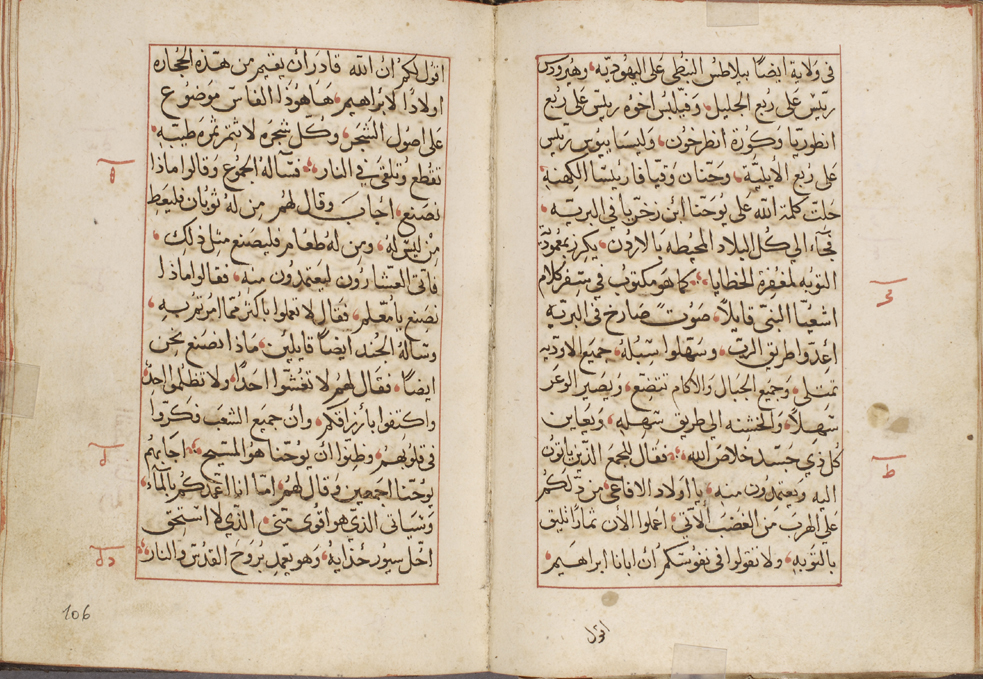 في ولاية ايضا بيلاطس النبطي على اليهوديه وهيرودس
رئيس على ربع الجليل وفيلبس اخوه رئيس على ربع
انطوريا وكورة انطرخون وليسانيوس رئيس
على ربع الابليه وحنان وقيافا رئيسا الكهنه
حلت كلمة الله على يوحنا ابن زخريا في البريه
فجاء الي كل البلاد المحيطه بالاردن يكرز بمعمودية
التوبه لمغفرة الخطايا كما هو مكتوب في سفر كلام
اشعيا النبي قايلا صوت صارخ في البريه
اعدوا طريق الرب وسهلوا سبله جميع الاوديه
تمتلى وجميع الجبال والاكام تتضع ويصير الوعر
سهلا والخشنه الي طريق سهله ويعاين
كل ذي جسد خلاص الله فقال للجمع الذين ياتون
اليه ويعتمدون منه يا اولاد الافاعي من دلكم
علي الهرب من الغضب الاتي اعملوا الان ثمارا تليق
بالتوبه ولا تقولوا في نفوسكم ان ابانا ابراهيم
اقول
ح
ط
اقول لكم ان الله قادر ان يقيم من هذه الحجاره
اولادا لابراهيم ها هوذا الفاس موضوع
على اصول الشجر وكل شجره لا تثمر ثمره طيبه
تقطع وتلقى في النار فساله الجموع وقالوا ماذا
نصنع اجاب وقال لهم من له ثوبان فليعط
من ليس له ومن له طعام فليصنع مثل ذلك
فاتى العشارون ليعتمدون منه فقالوا ماذا
نصنع يا معلم فقال لا تعملوا باكثر مما امرتم به
وساله الجند ايضا قايلين ماذا نصنع نحن
ايضا فقال لهم لا تغشوا احدا ولا تظلموا احدا
واكتفوا بارزاقكم وان جميع الشعب فكروا
في قلوبهم وظنوا ان يوحنا هو المسيح اجابهم
يوحنا اجمعين وقال لهم اما انا اعمدكم بالماء
وسياتي الذي هو اقوى مني الذي لا استحق
احل سيور حذايه وهو يعمد بروح القدس والنار
106